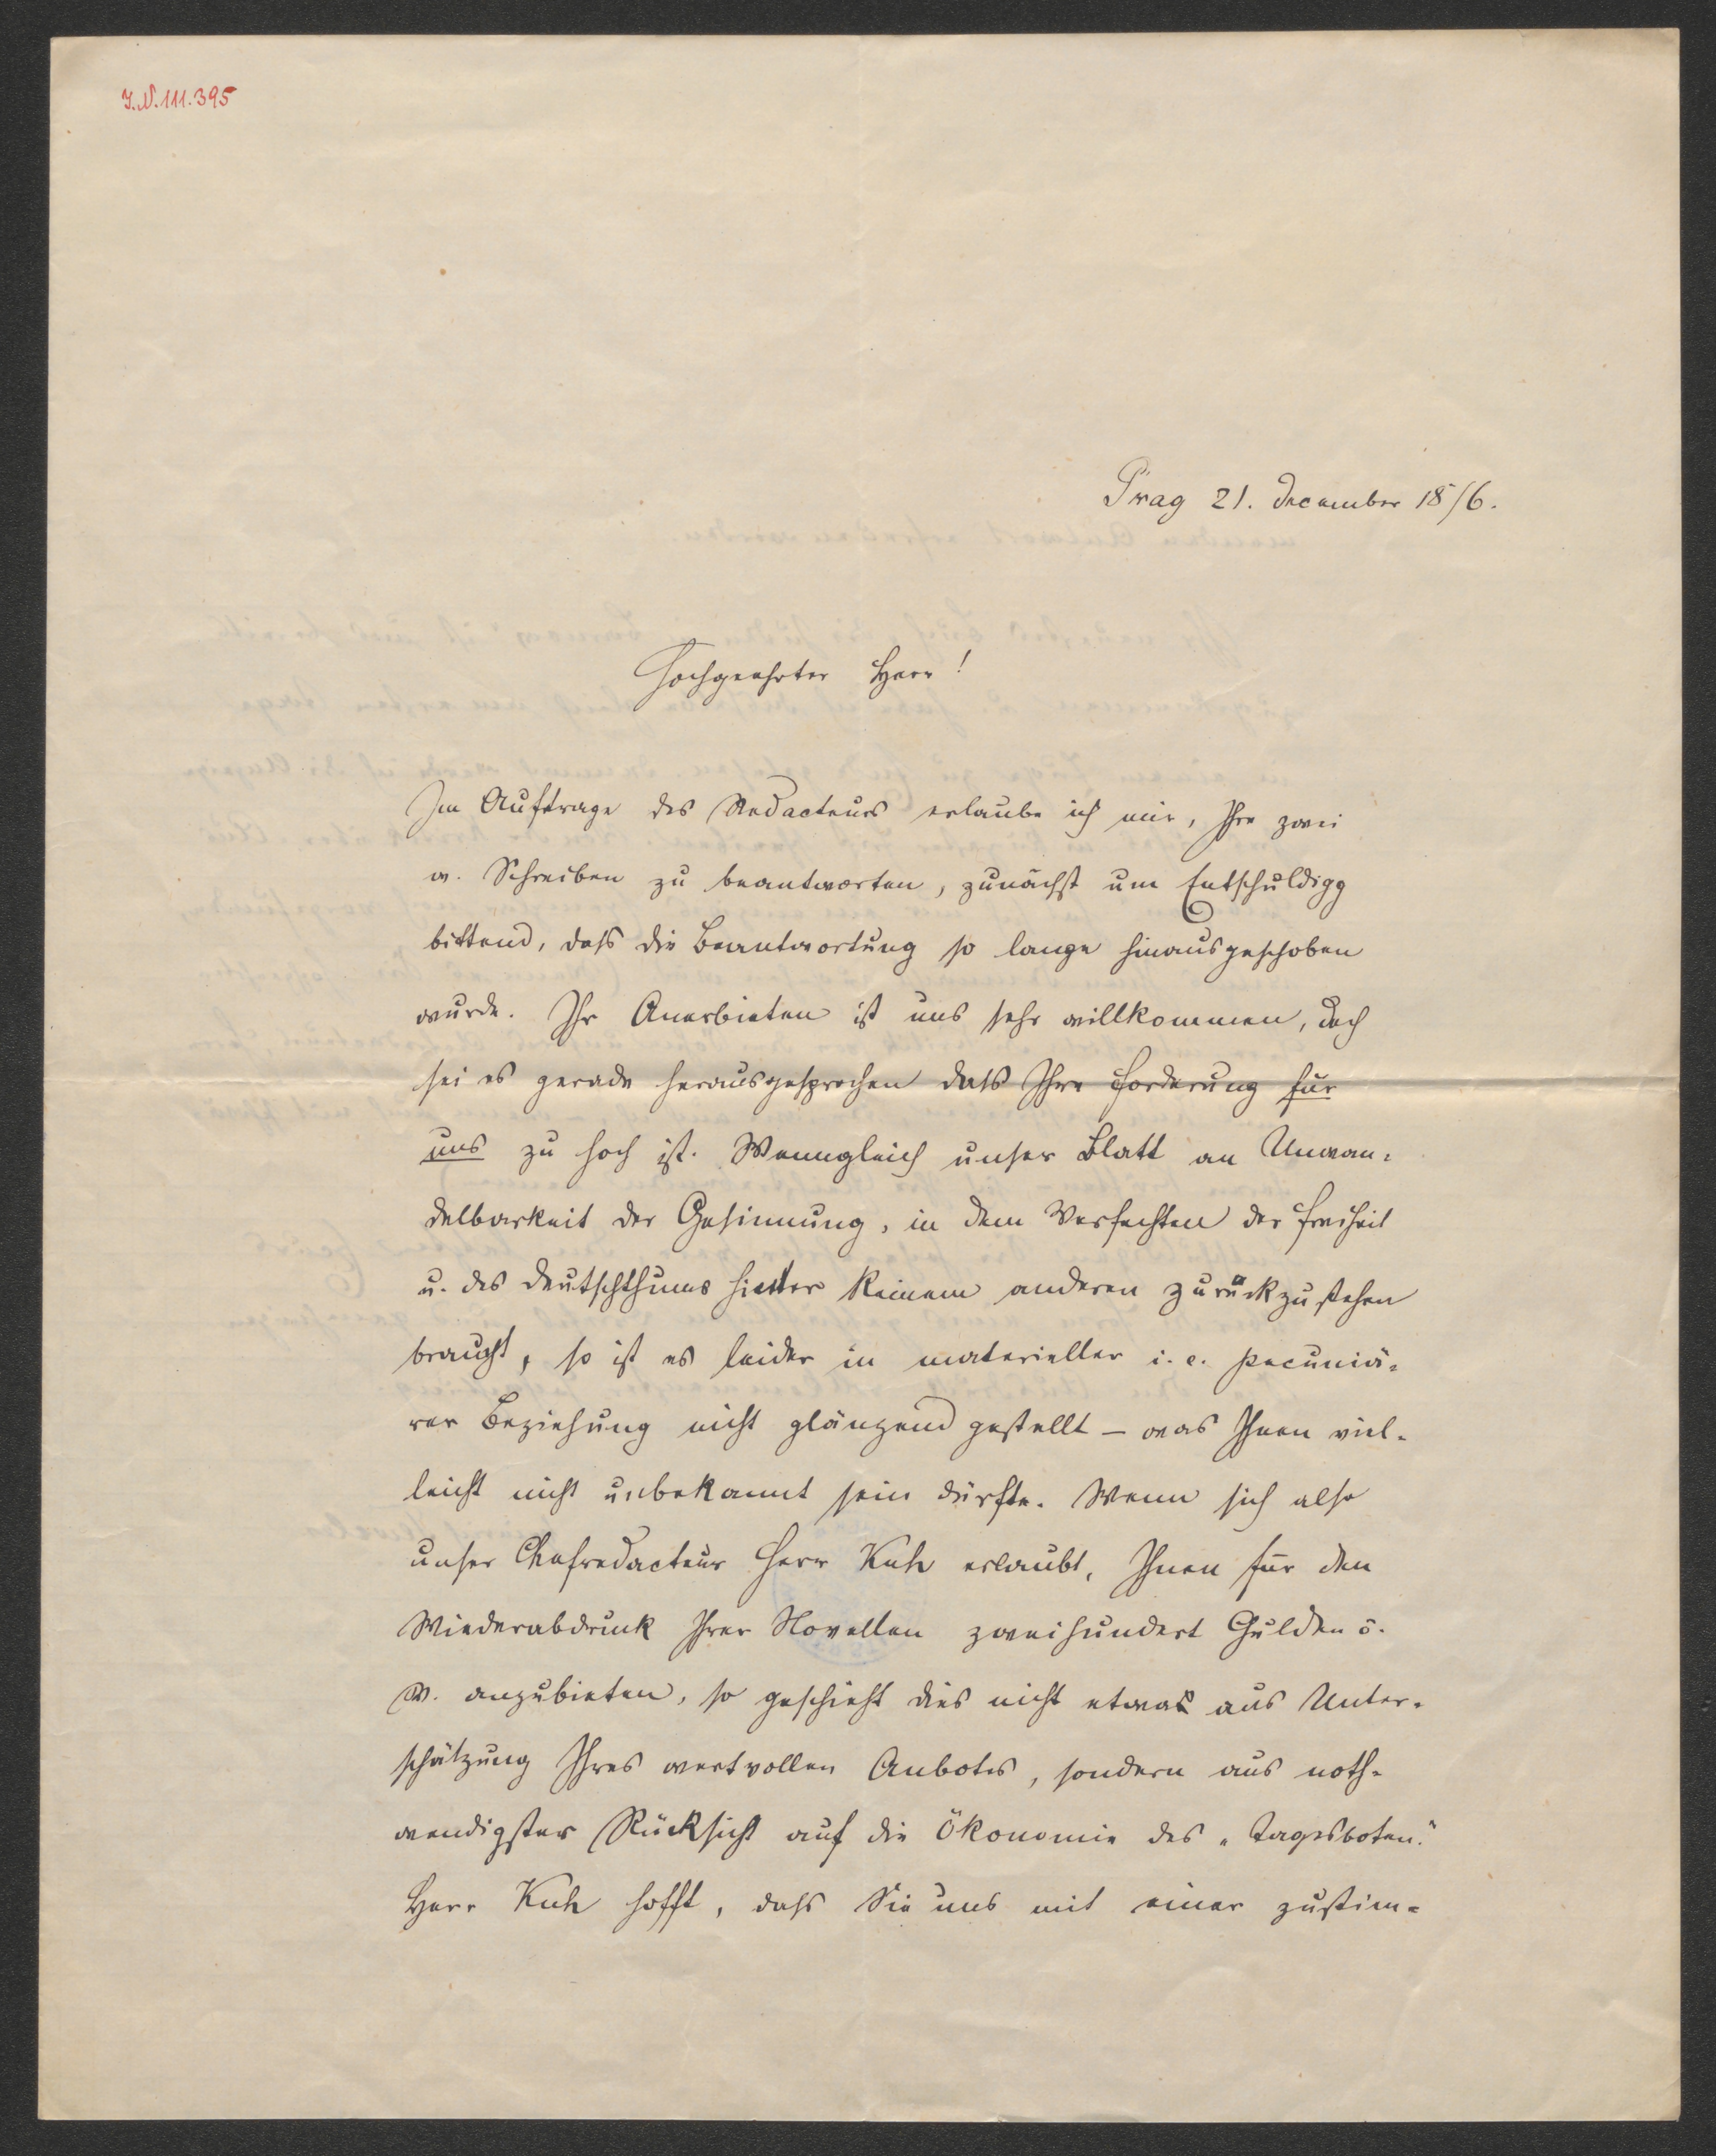 J.N. 111.395
Prag 21. December 1876.
Hochgeehrter Herr!
Im Auftrage des Redacteurs erlaube ich mir, Ihre zwei
w. Schreiben zu beantworten, zunächst um Entschuldigg
bittend, daß die Beantwortung so lange hinausgeschoben
wurde. Ihr Anerbieten ist uns sehr willkommen, doch
sei es gerade herausgesprochen daß Ihre Forderung für
uns zu hoch ist. Wenngleich unser Blatt an Unwan-
delbarkeit der Gesinnung, in dem Verfechten der Freiheit
u. des Deutschthums hinter keinem anderen zurückzustehen
braucht, so ist es leider in materieller i. e. pecuniä-
rer Beziehung nicht glänzend gestellt – was Ihnen viel-
leicht nicht unbekannt sein dürfte. Wenn sich also
unser Chefredacteur Herr Kuh erlaubt, Ihnen für den
Wiederabdruck Ihrer Novellen zweihundert Gulden ö.
W. anzubieten, so geschieht dies nicht etwa aus Unter-
schätzung Ihres wertvollen Anbotes, sondern aus noth-
wendigster Rücksicht auf die Ökonomie des „Tagesboten."
Herr Kuh hofft, daß Sie uns mit einer zustim-